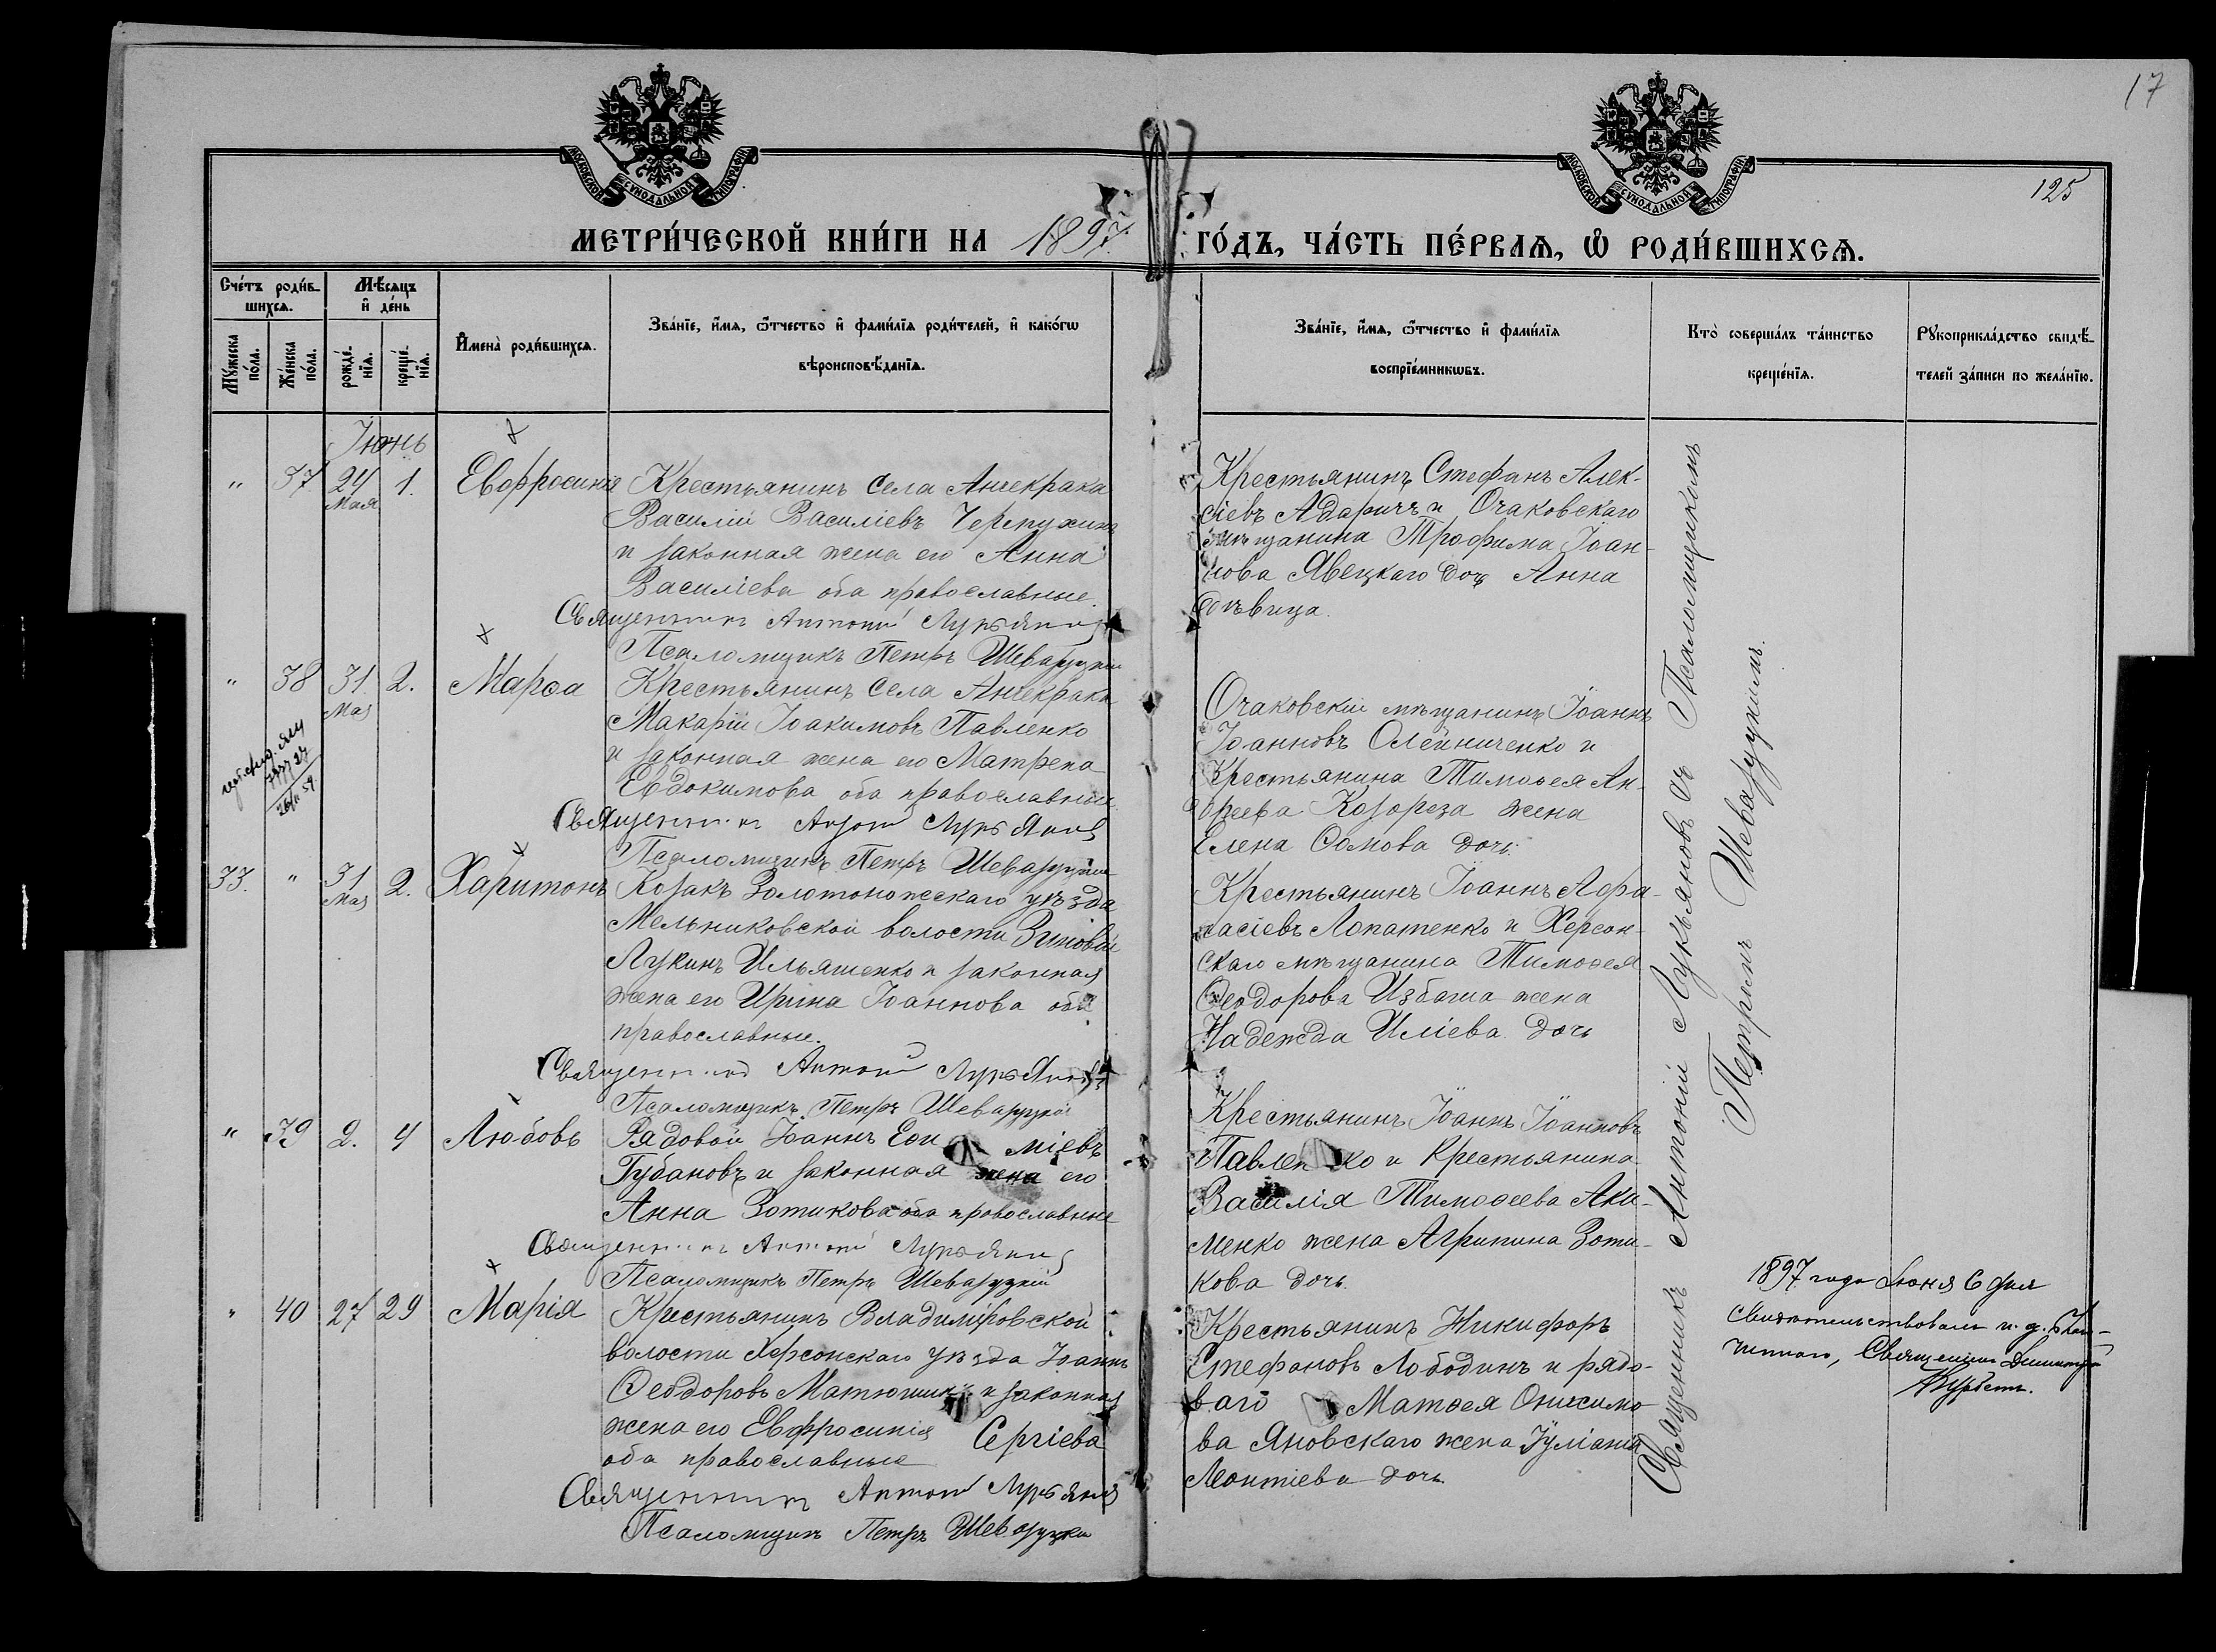 17
125
МОСКОВСКОЙ СУНОДАЛЬНОЙ ТИПОГРАФІИ
МОСКОВСКОЙ СУНОДАЛЬНОЙ ТИПОГРАФІИ
МЕТРИ́ЧЕСКОЙ КНИ́ГИ НА 1897
ГО́ДЪ, ЧА́СТЬ ПЕ́РВАѦ, Ѡ҆ РОДИ́ВШИХСѦ.
Сче́тъ роди́в-
шихсѧ.
Мѣ́сѧцъ
и҆ де́нь
Мꙋ́жеска
по́ла.
Же́нска
по́ла.
рожде́-
нїѧ.
креще́-
нїѧ.
И҆мена̀ роди́вшихсѧ.
Зва́нїе, и҆́мѧ, ѻ҆́тчество и҆ фами́лїѧ роди́телей, и҆ како́гѡ
вѣроисповѣ́данїѧ.
Зва́нїе, и҆́мѧ, ѻ҆́тчество и҆ фами́лїѧ
воспрїе́мникѡвъ.
Кто̀ соверша́лъ та́инство
креще́нїѧ.
Рꙋкоприкла́дство свидѣ́-
телей за́писи по жела́нїю.
Іюнь
" 37 24 Мая 1. Евфросинія
Крестьянинъ села Анчекрака
Василій Василіевъ Черпухинъ
и законная жена его Анна
Василіева оба православные.
Священникъ Антоній Лукьяновъ
Псаломщикъ Петръ Шеваруцкій
Крестьянинъ Стефанъ Алек-
сіевъ Адаричъ и Очаковскаго
мѣщанина Трофима Іоан-
нова Явецкаго дочь Анна
дѣвица.
" 38 31 Мая 2. Марѳа
Крестьянинъ села Анчекрака
Макарій Іоакимовъ Павленко
и законная жена его Матрена
Евдокимова оба православные
Священникъ Антоній Лукьяновъ
Псаломщикъ Петръ Шеваруцкій
Очаковскій мѣщанинъ Іоаннъ
Іоанновъ Олейниченко и
Крестьянина Тимоѳея Ан-
дреева Козореза жена
Елена Ѳомова дочь.
33. " 31 Мая 2. Харитонъ
Козакъ Золотоножскаго уѣзда
Мельниковской волости Зиновій
Лукинъ Ильяшенко и законная
жена его Ирина Іоаннова оба
православные.
Священникъ Антоній Лукьяновъ
Псаломщикъ Петръ Шеваруцкій
Крестьянинъ Іоаннъ Афа-
насіевъ Лопатенко и Херсон-
скаго мѣщанина Тимоѳея
Ѳеодорова Избаша жена
Надежда Иліева дочь
" 39 2. 4 Любовь
Рядовой Іоаннъ Еѳи міевъ
Губановъ и законная жена его
Анна Зотикова оба православные
Священникъ Антоній Лукьяновъ
Псаломщикъ Петръ Шеваруцкій
Крестьянинъ Іоаннъ Іоанновъ
Павленко и Крестьянина
Василія Тимоѳеева Аки-
менко жена Агрипина Зоти-
кова дочь.
" 40 27 29 Марія
Крестьянинъ Владиміровской
волости Херсонскаго уѣзда Іоаннъ
Ѳеодоровъ Матюшинъ и законная
жена его Евфросинія Сергіева
оба православные
Священникъ Антоній Лукьяновъ
Псаломщикъ Петръ Шеваруцкій
Крестьянинъ Никифоръ
Стефановъ Лободинъ и рядо-
ваго Матѳея Онисимо
ва Яновскаго жена Іуліанія
Леонтіева дочь
Священникъ Антоній Лукьяновъ съ Псаломщикомъ
Петромъ Шеваруцкимъ.
1897 года Іюня 6 дня
Свидѣтельствовалъ и. д. Благо-
чиннаго, Священникъ Димитрій